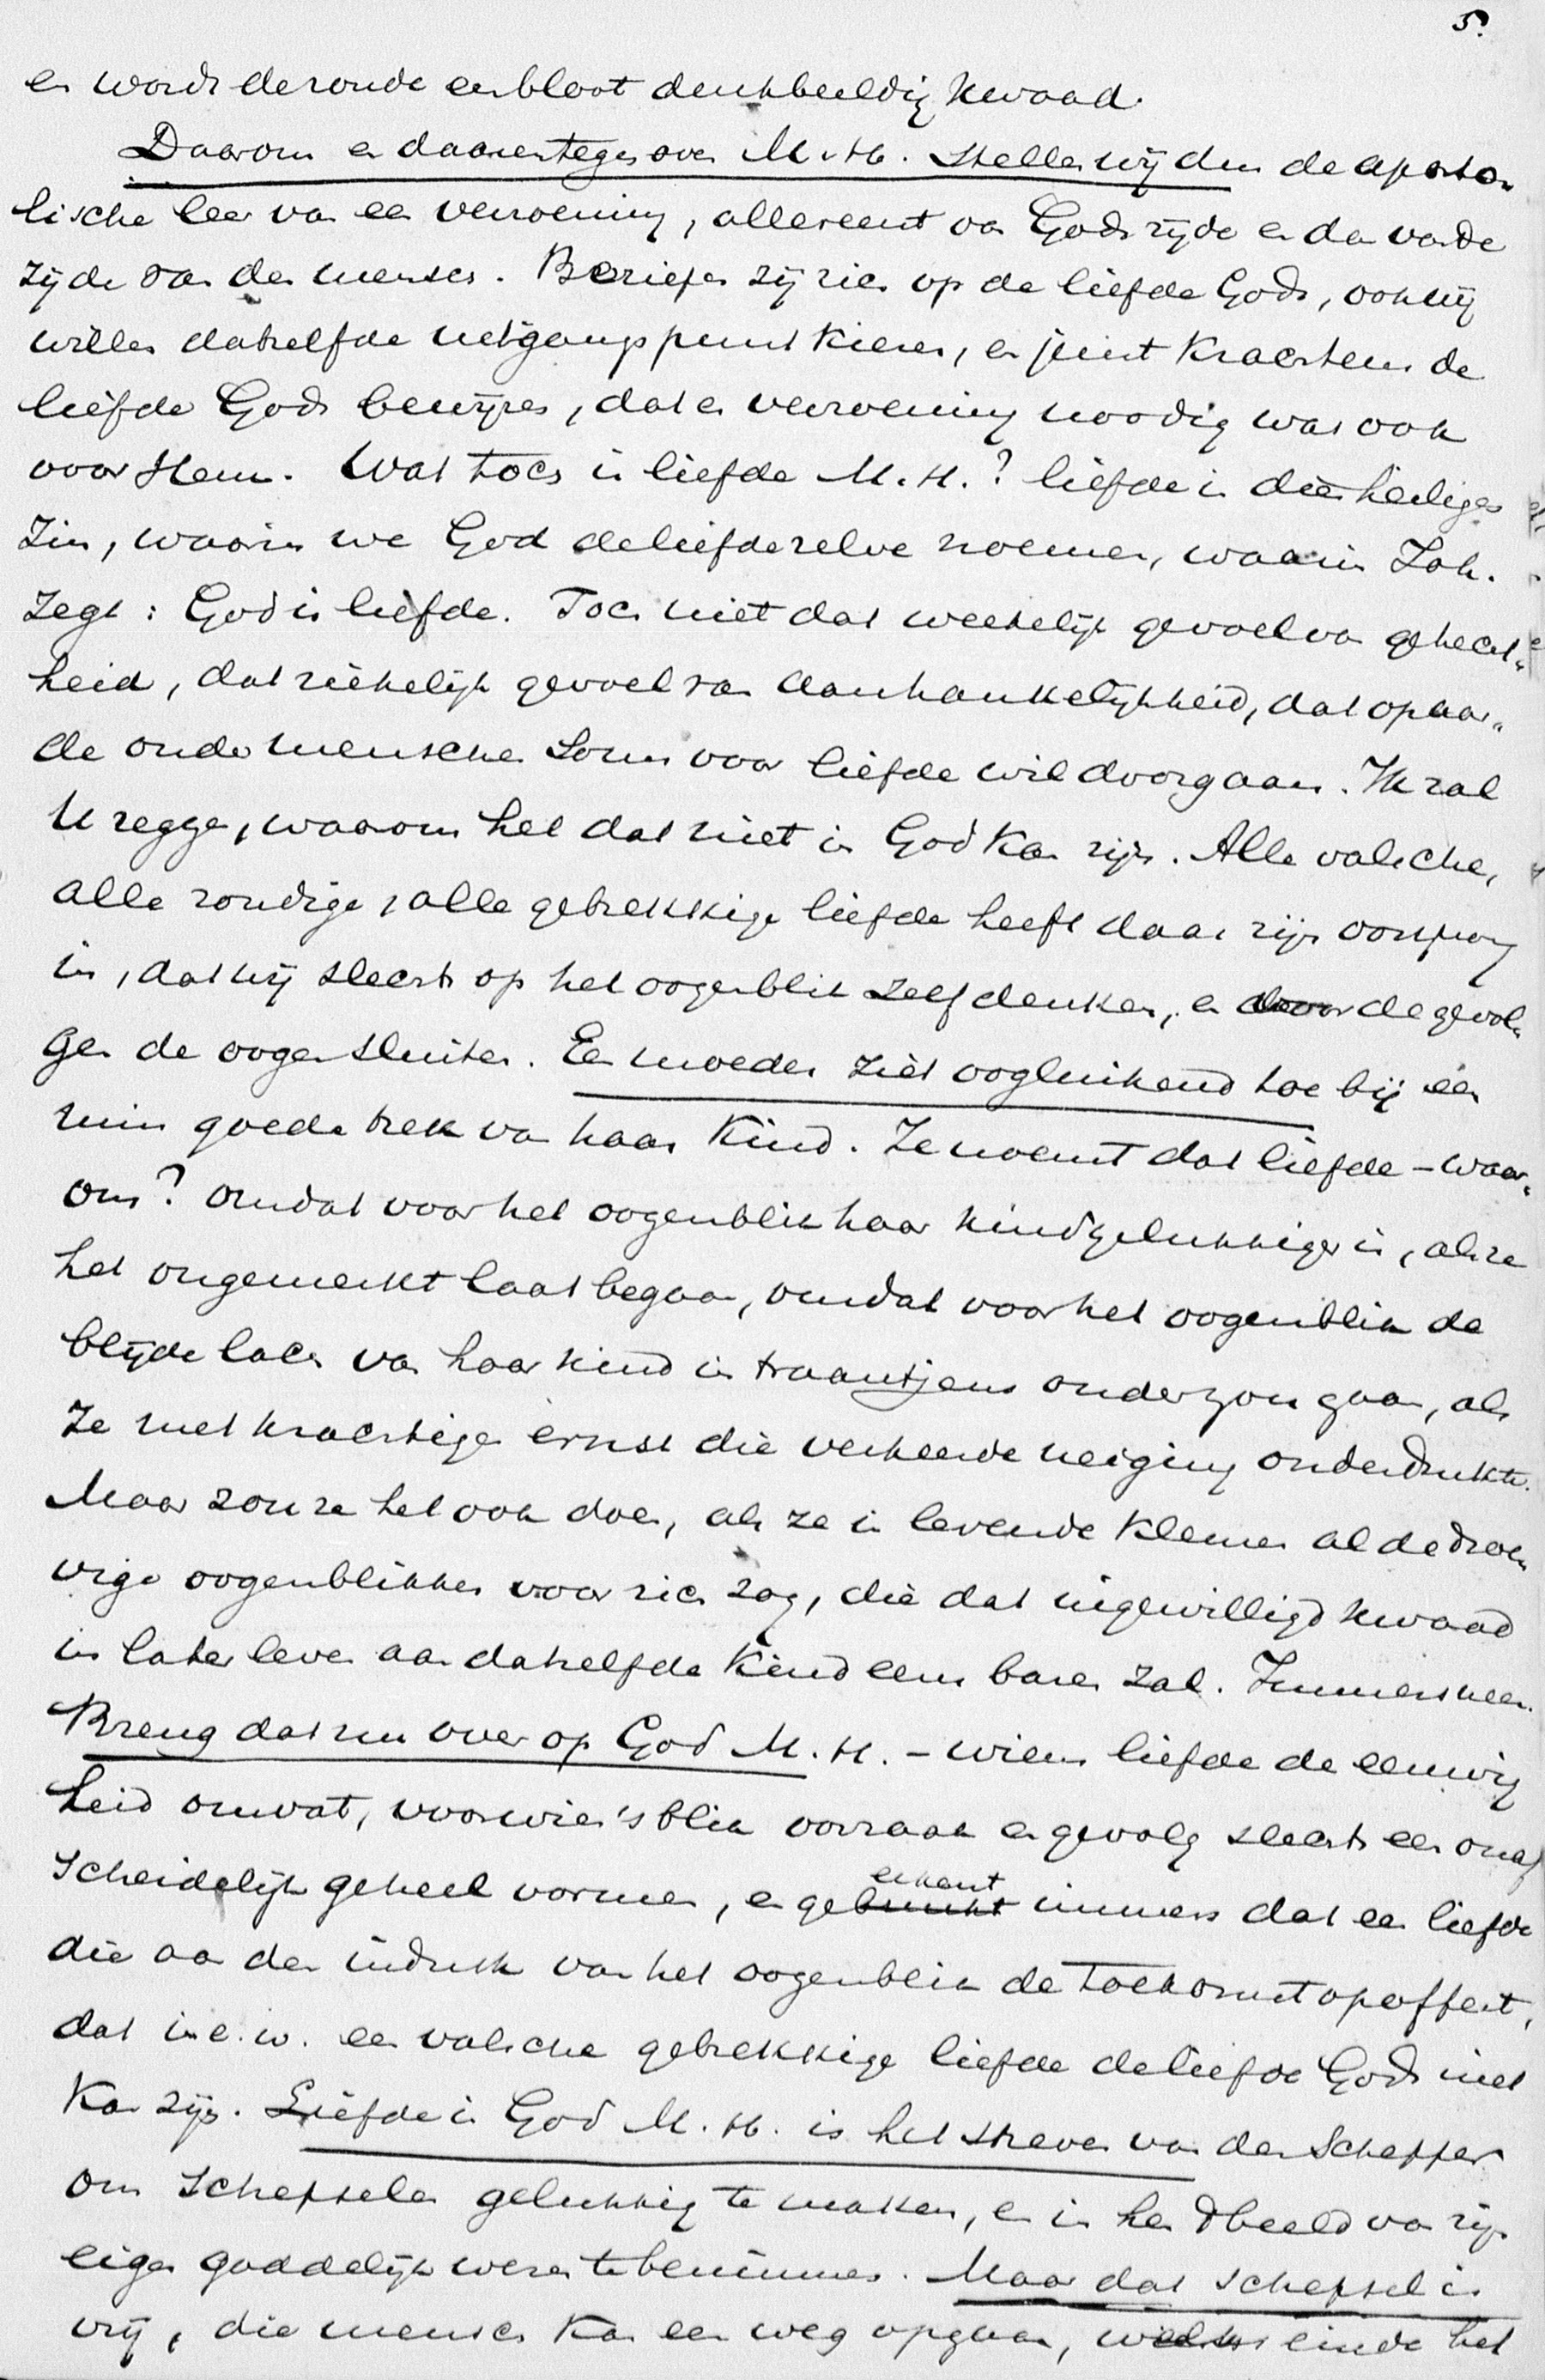 5.
en wordt de zonde een bloot denkbeeldig kwaad.
Daarom en daarentegenover M.H. stellen wij den de aposto„
lische leer van een verzoening, allereerst van Gods zijde en dan van de
zijde van den mensch. Beriepen zij zich op de liefde Gods, ook wij
willen datzelfde uitgangspunt kiezen, en juist krachtens de
liefde Gods bewijzen, dat er verzoening noodig was ook
voor Hem. Wat toch is liefde M.H.? liefde in dien heiligen
zin, waarin we God de liefde zelve noemen, waarin Joh.
zegt: God is liefde. Toch niet dat weekelijk gevoel van gehecht„
heid, dat ziekelijk gevoel van aanhankelijkheid, dat op aar„
de onder menschen soms voor liefde wil doorgaan. Ik zal
U zeggen, waarom het dat niet in God kan zijn. Alle valsche,
alle zondige, alle gebrekkige liefde heeft daar zijn oorsprong
in, dat wij slechts op het oogenblik zelf denken, en voor de gevol„
gen de oogen sluiten. Een moeder ziet oogluikend toe bij een
min goede trek van haar kind. Ze noemt dat liefde – waar„
om? omdat voor het oogenblik haar kind gelukkiger is, als ze
het ongemerkt laat begaan, omdat voor het oogenblik de
blijde lach van haar kind in traantjens onder zou gaan, als
ze met krachtige ernst die verkeerde neiging onderdrukte.
Maar zou ze het ook doen, als ze in levende kleuren al de droe„
vige oogenblikken voor zich zag, die dat ingewilligd kwaad
in later leven aan datzelfde kind eens baren zal. Immers neen.
Breng dat nu over op God M.H. – wiens liefde de eeuwig
heid omvat, voor wien 's blik oorzaak en gevolg slechts een onaf
scheidelijk geheel vormen, en ge erkent immers dat een liefde
die aan den indruk van het oogenblik de toekomst opoffert,
dat in é.w. een valsche gebrekkige liefde de liefde Gods niet
kan zijn. Liefde in God M.H. is het streven van den Schepper
om schepselen gelukkig te maken, en in hen 't beeld van zijn
eigen goddelijk wezen te beminnen. Maar dat schepsel is
vrij, die mensch kan een weg opgaan, welks einde het